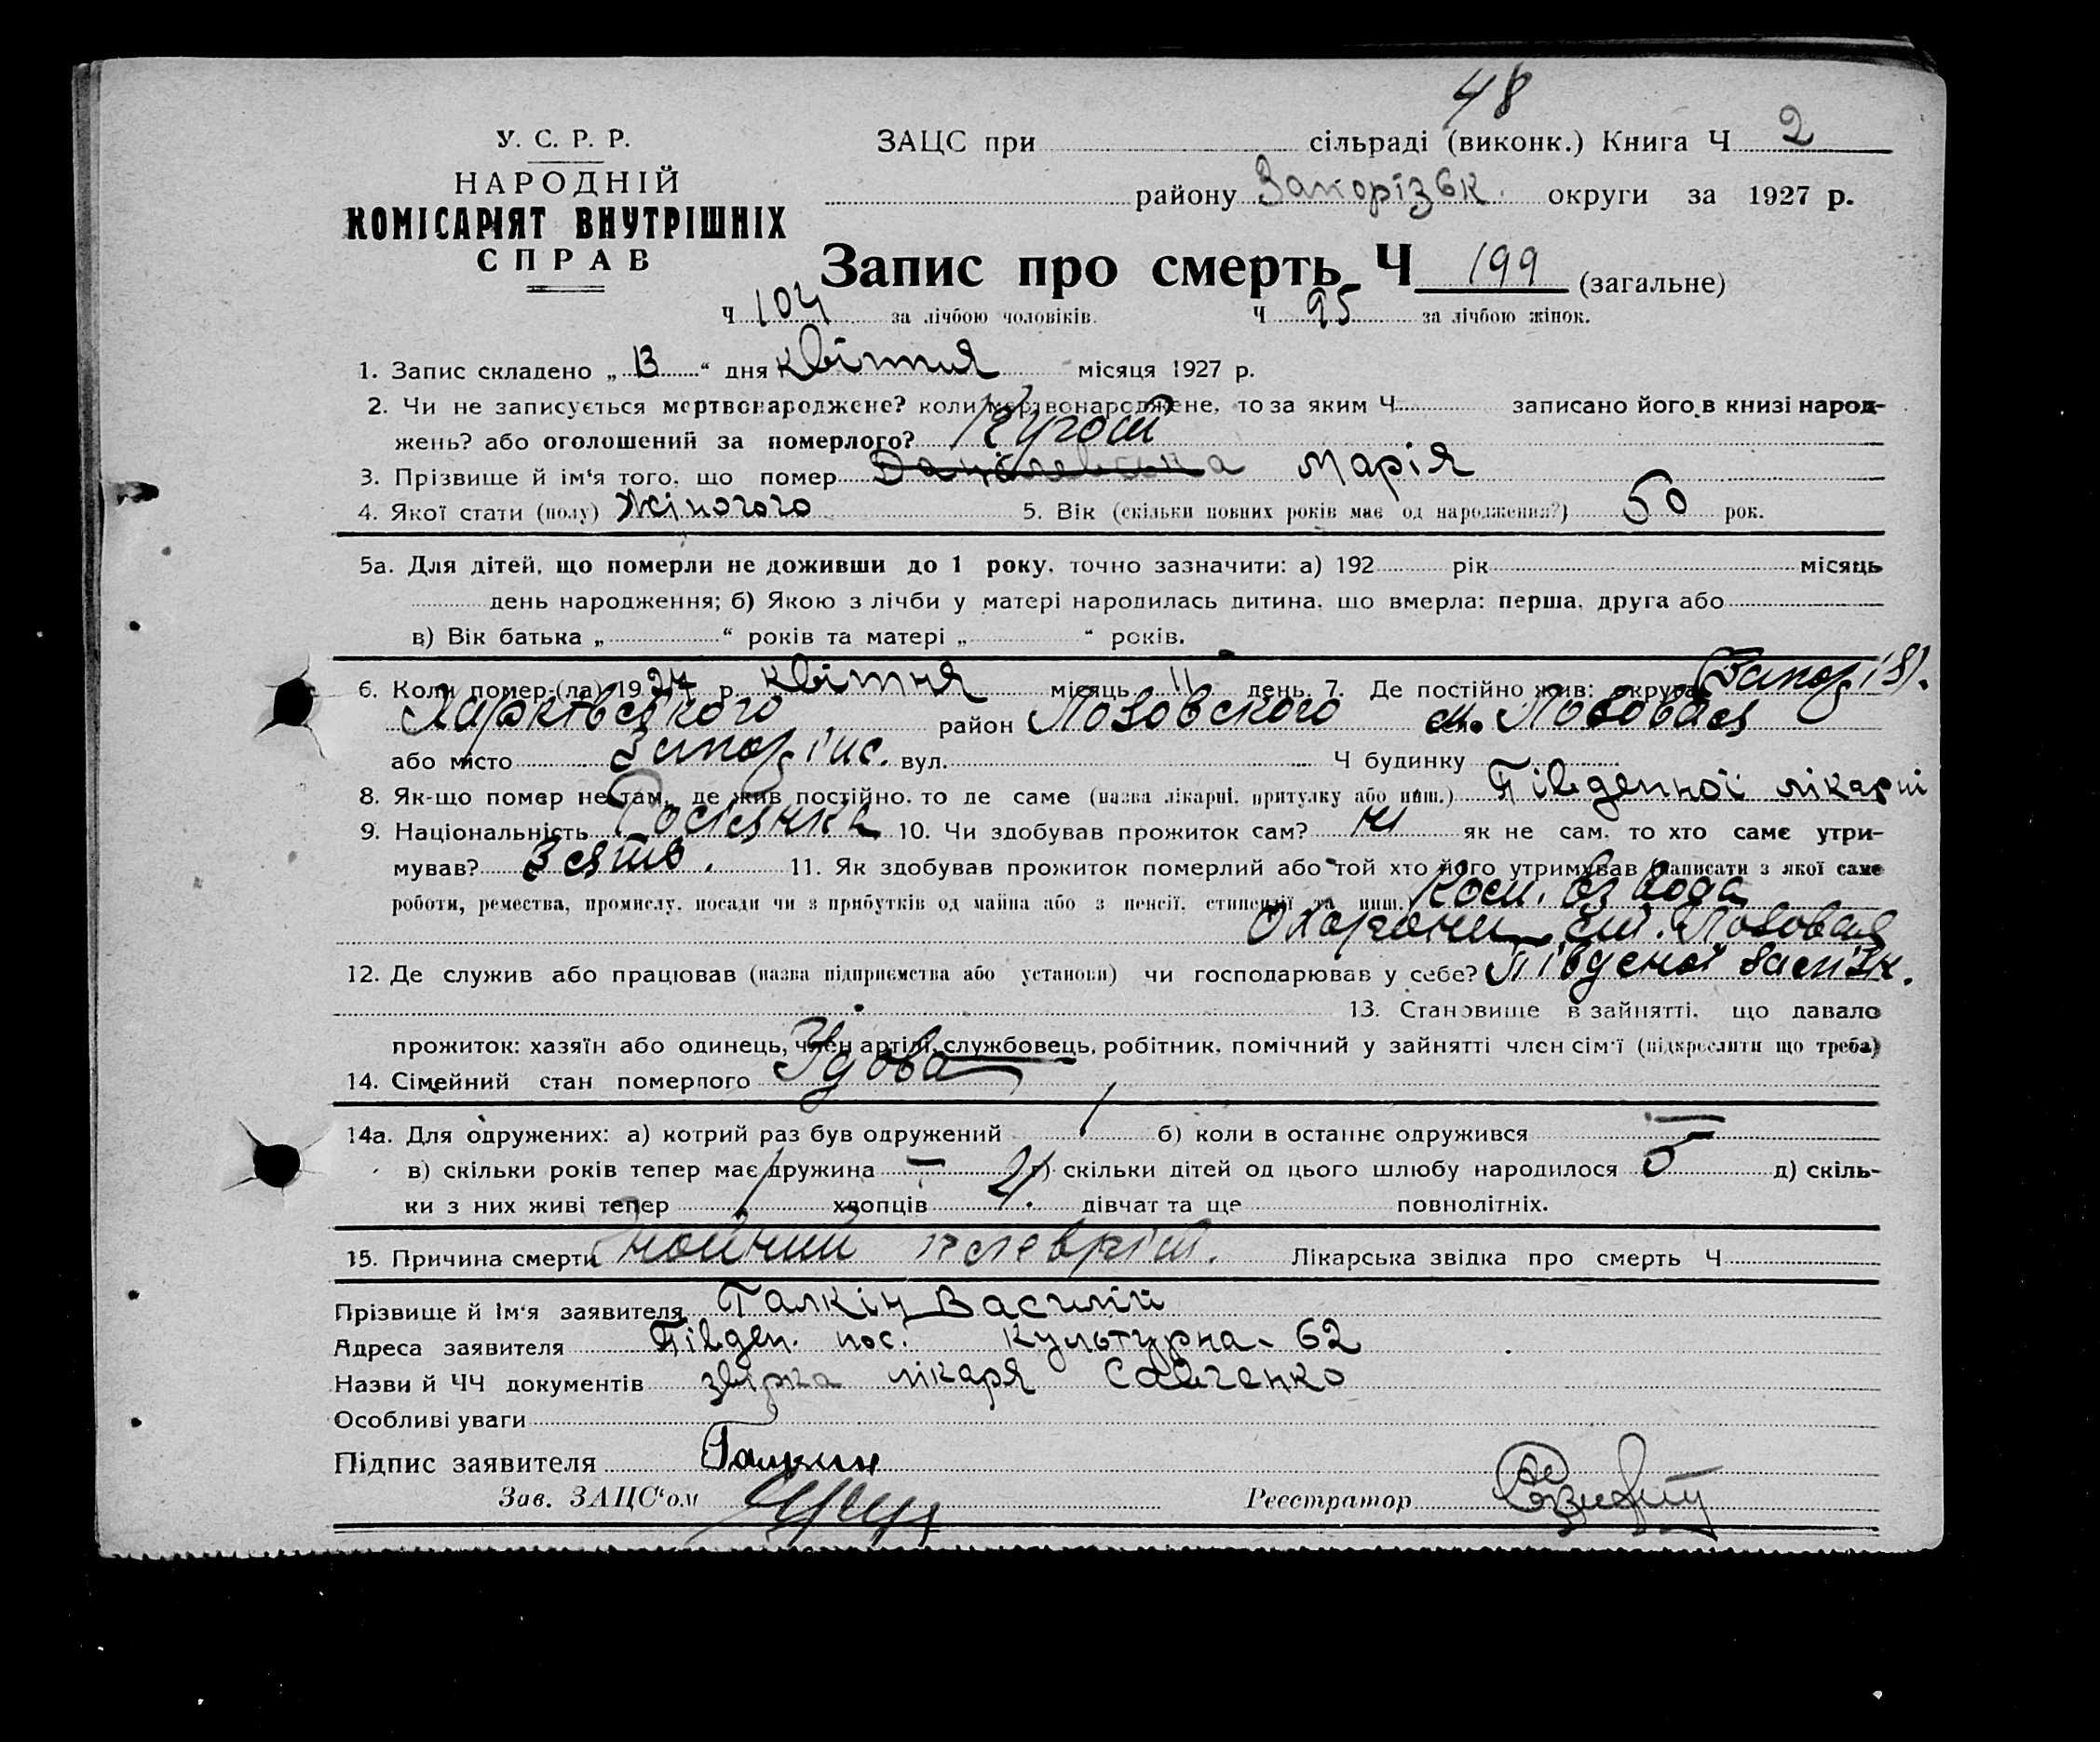 48
У. С. Р. Р.
НАРОДНІЙ
КОМІСАРІЯТ ВНУТРІШНІХ
СПРАВ
ЗАЦС при сільраді (виконк.) Книга Ч 2
району Запорізьк. округи за 1927 р.
Запис про смерть Ч 199 (загальне)
Ч 104 за лічбою чоловіків. Ч 95 за лічбою жінок.
1. Запис складено „ 13 “ дня квітня місяця 1927 р.
2. Чи не записується мертвонароджене? коли мертвонароджене, то за яким Ч записано його в книзі народ-
жень? або оголошений за померлого?
3. Прізвище й ім‘я того, що помер Марія
4. Якої стати (полу) Жіночого 5. Вік (скільки повних років має од народження?) 50 рок.
5а. Для дітей, що померли не доживши до 1 року, точно зазначити: а) 192 рік місяць
день народження; б) Якою з лічби у матері народилась дитина, що вмерла: перша, друга або
в) Вік батька „ “ років та матері „ “ років.
6. Коли помер (ла) 1927 р. квітня місяць 11 день. 7. Де постійно жив: округа
Харківського район Лозовського Лозовая
або місто вул. Ч будинку
8. Як-що помер не там, де жив постійно, то де саме (назва лікарні, притулку або инш.) Південної лікарні
9. Національність Росіянка 10. Чи здобував прожиток сам? ні як не сам, то хто саме утри-
мував? Зять. 11. Як здобував прожиток померлий або той хто його утримував (написати з якої саме
роботи, ремества, промислу, посади чи з прибутків од майна або з пенсії, стипендії та инш.)
Охорони ст. Лозовая
12. Де служив або працював (назва підприємства або установи) чи господарював у себе? Південої
13. Становище в зайнятті, що давало
прожиток: хазяїн або одинець, член артілі, службовець, робітник, помічний у зайнятті член сім‘ї (підкреслити що треба)
14. Сімейний стан померлого Удова
14а. Для одружених: а) котрий раз був одружений 1 б) коли в останнє одружився —
в) скільки років тепер має дружина — г) скільки дітей од цього шлюбу народилося 5 д) скіль-
ки з них живі тепер 1 хлопців 4. дівчат та ще повнолітніх.
15. Причина смерти гнойний плевріт. Лікарська звідка про смерть Ч
Прізвище й Ім‘я заявителя Галкін Василій
Адреса заявителя Півден. пос. Культурна - 62
Назви й ЧЧ документів лікаря Савченко
Особливі уваги
Підпис заявителя Галкин
Зав. ЗАЦС‘ом Реєстратор